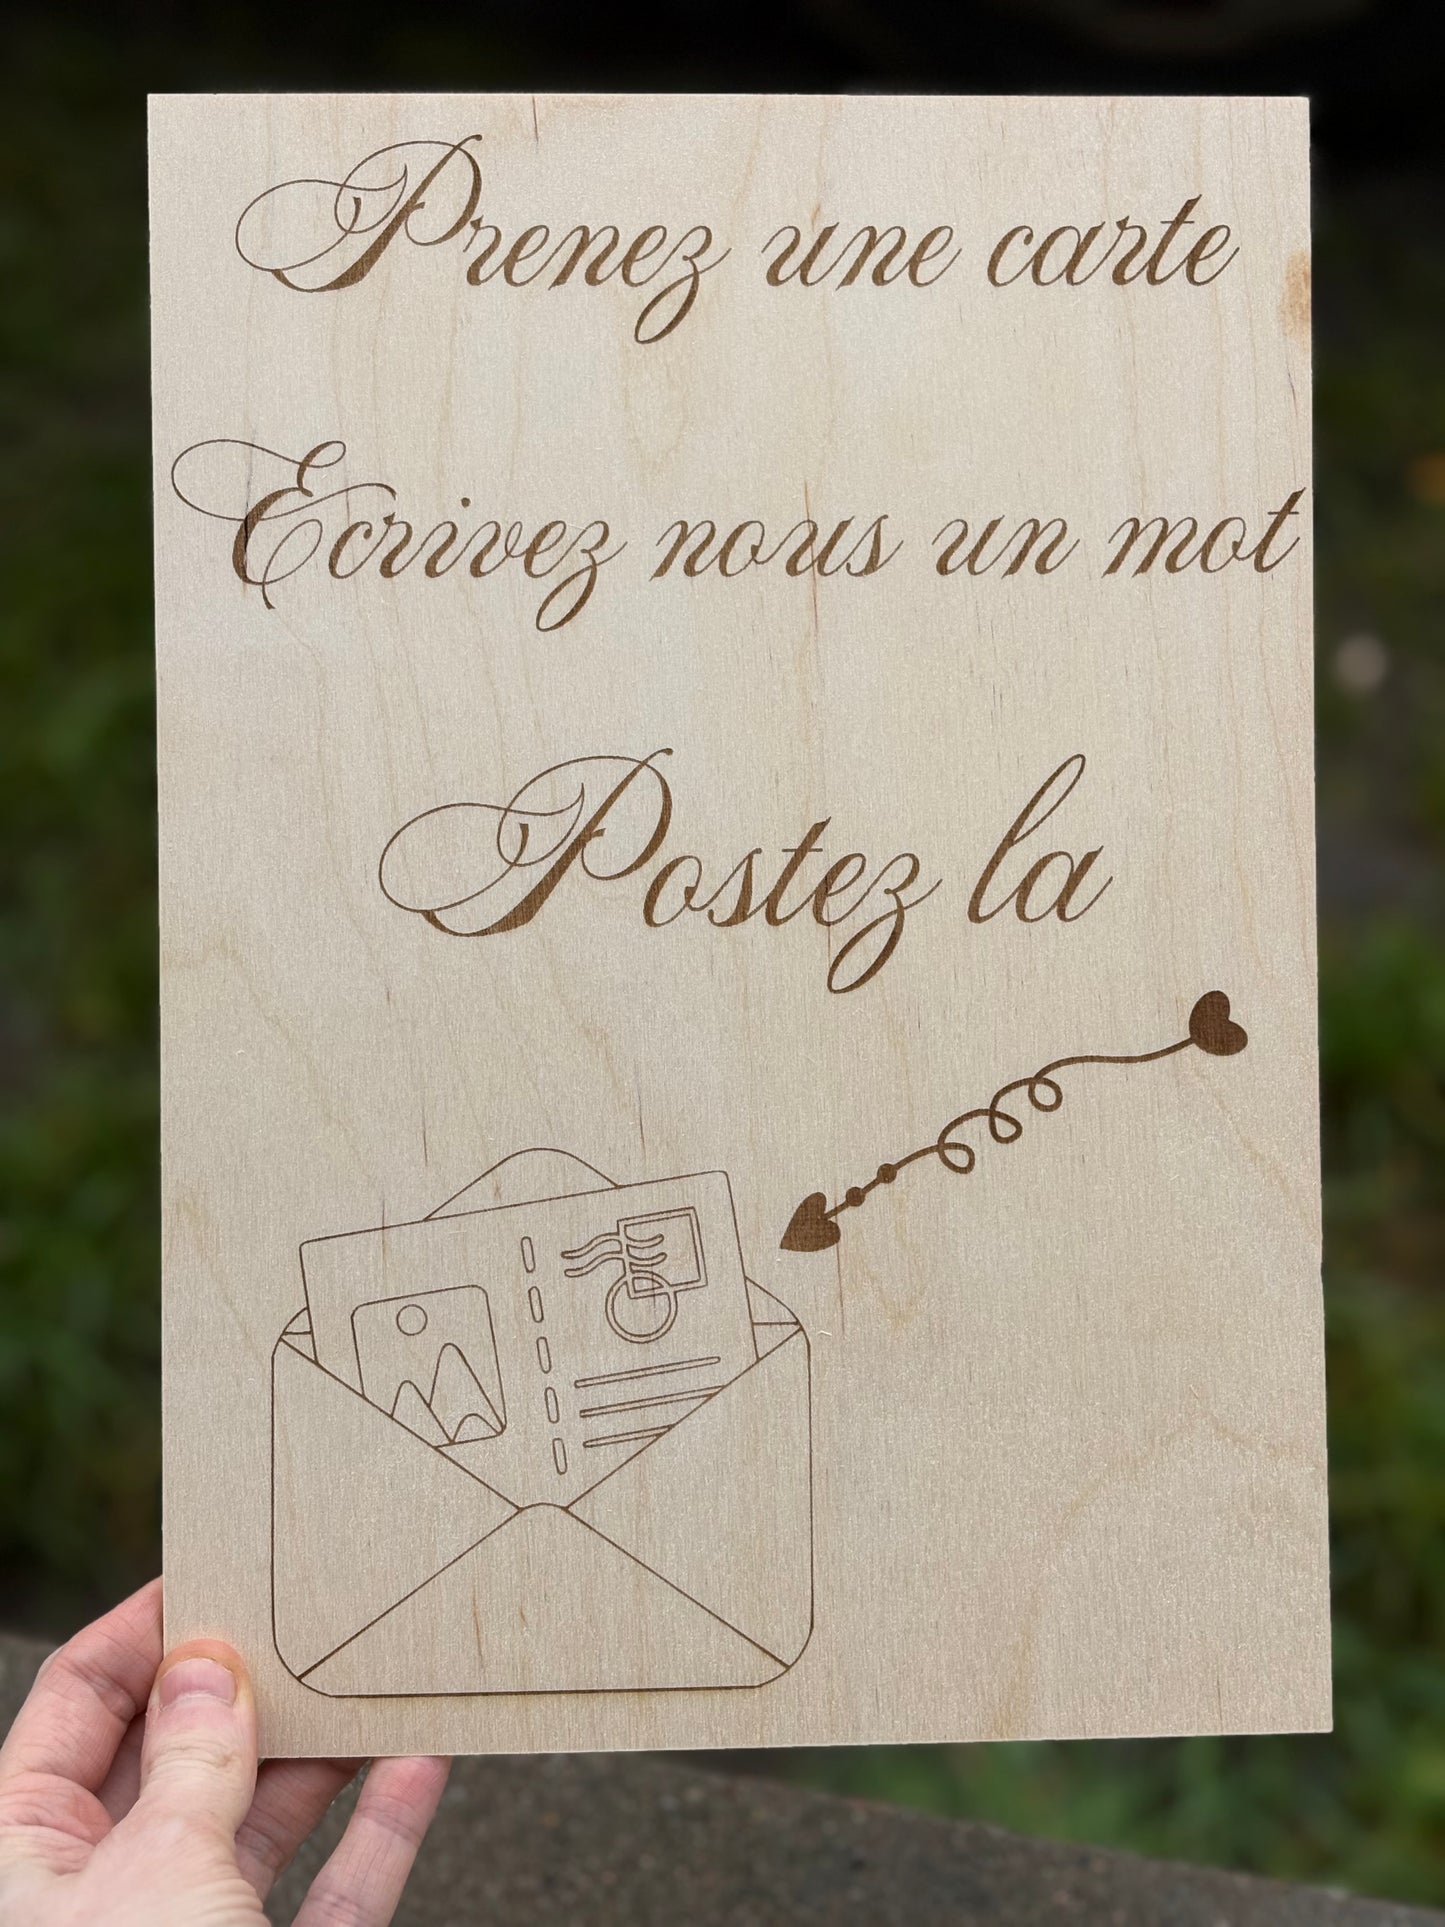 Prenez une carte
Ecrivez nous un mot
Postez la